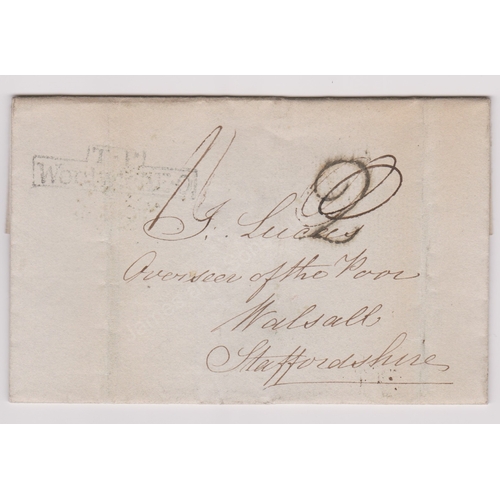 T.P
J. Lucas
Overseer of the Poor
Walsall
Staffordshire